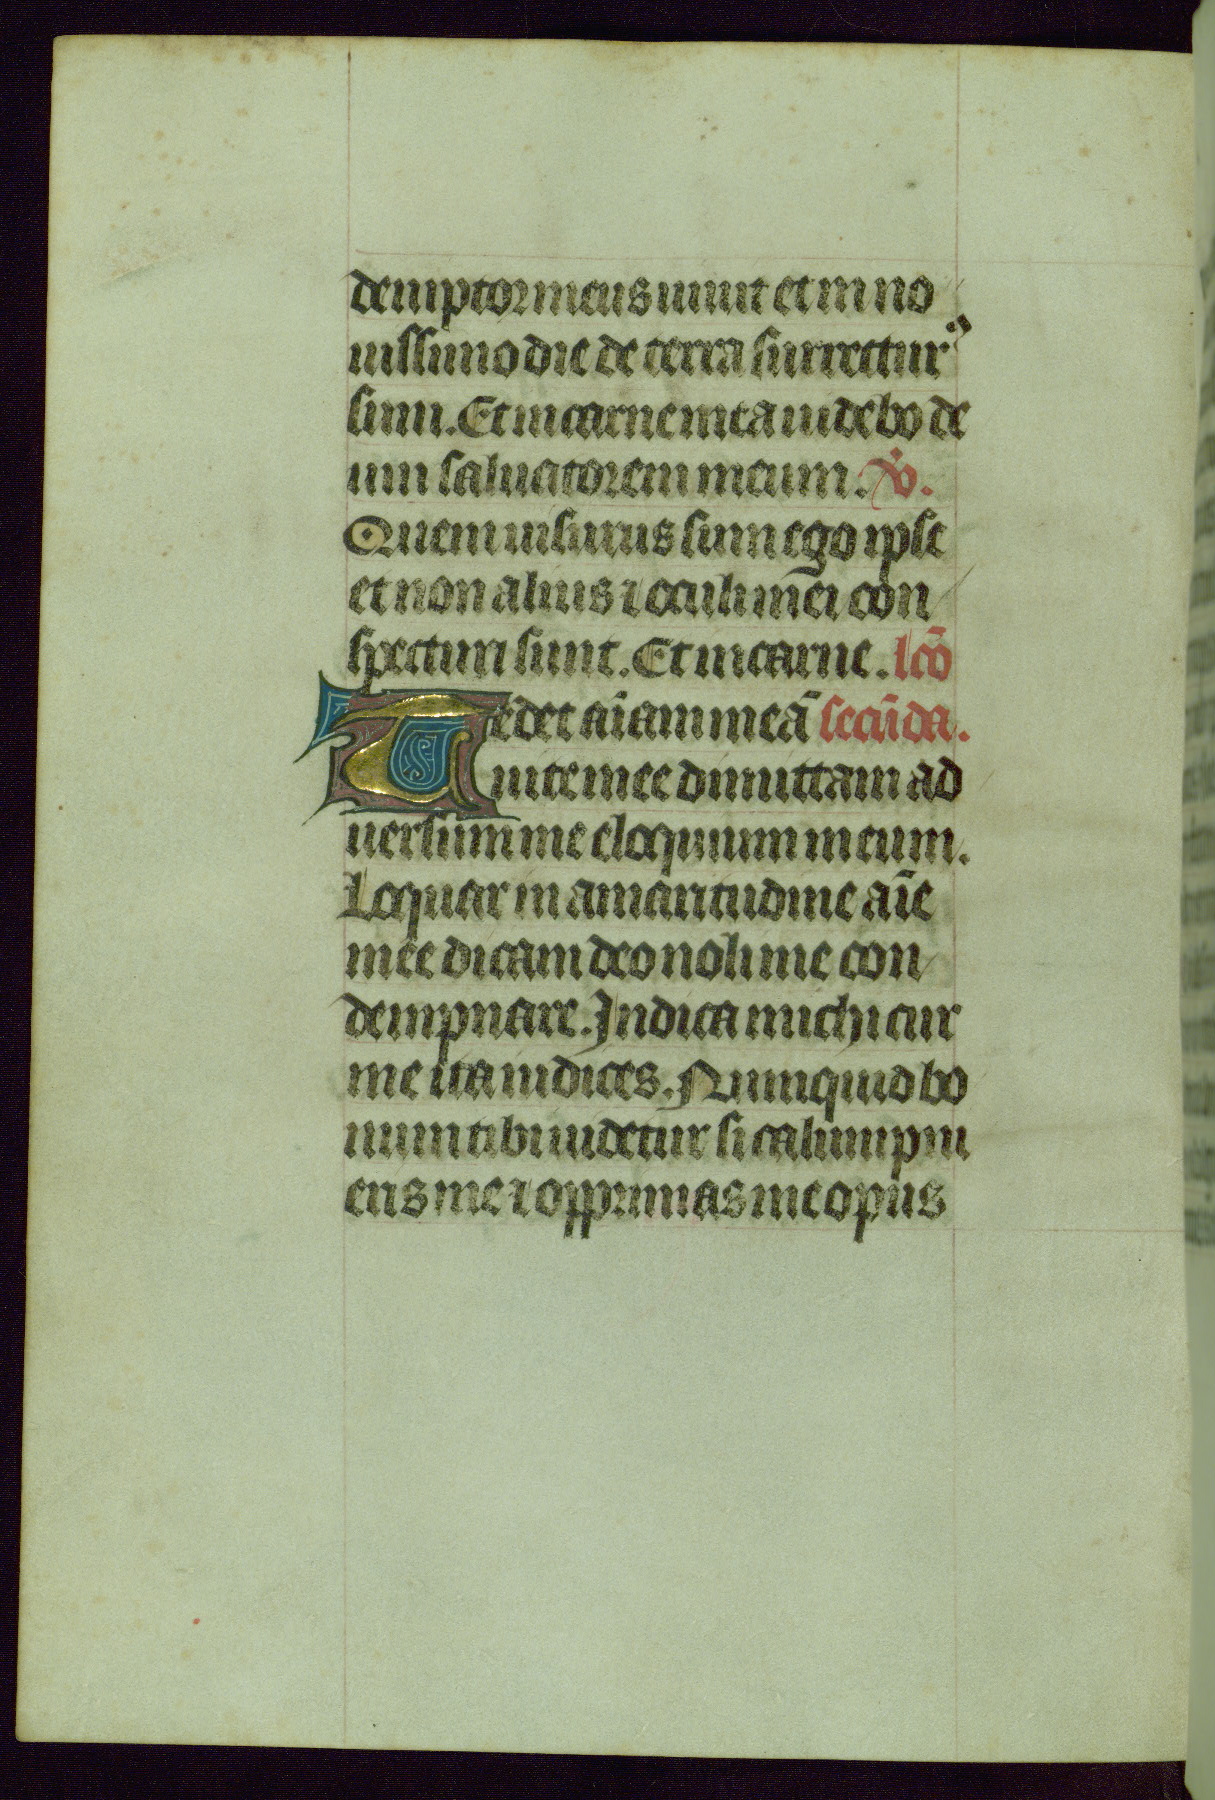 demptor meus uiuit et in no
uissimo die de terra surrectur᷒
sum. Et in carne mea uidebo de
um saluatorem meum. V̇.
Quem uisurus sum ego ipse
et non alius ⁊ oculi mēi con
specturi sunt. Et in carne. lc̄o
Tedet aīam meā secūda.
uite mee dimittam ad
uersum me eloquium meum.
Loquar in amaritudine aīe
mee dicam deo noli me con
dempnare. Indica michi cur
me ita iudices. Numquid bo
num tibi uidetur si calumpni
eris me ⁊ opprimas me opus